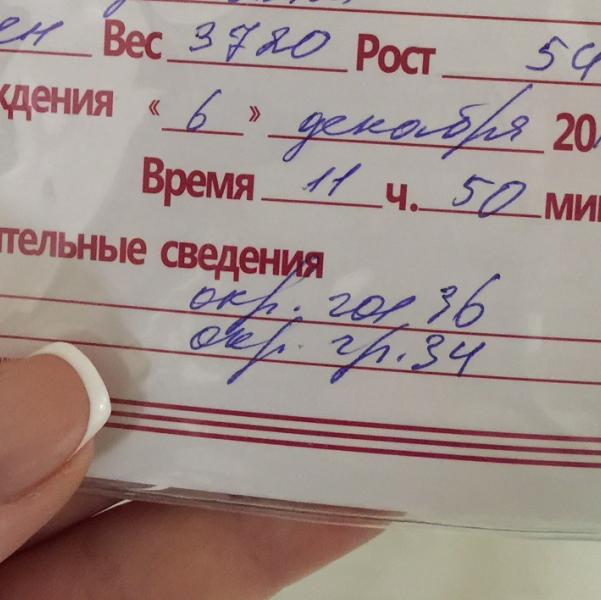 ен Вес 3720 Рост 54
ждения « 6 » декабря 20
Время 11 ч. 50 мин
ительные сведения
окр. гол 36
окр. гр. 34